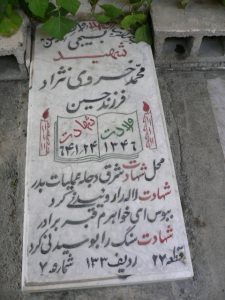 شهید
محمد خسروی نژاد
فرزند حسین
ولادت شهادت
۱۳۴۶ ۶۴٫۱٫۲۴
محل شهادت شرق دجله عملیات بدر
شهادت لاله را
ببوس ای خواهرم قبر برادر
شهادت سنگ را بوسیدنی کرد
قطعه ۲۷ ردیف ۱۳۳ شماره ۷